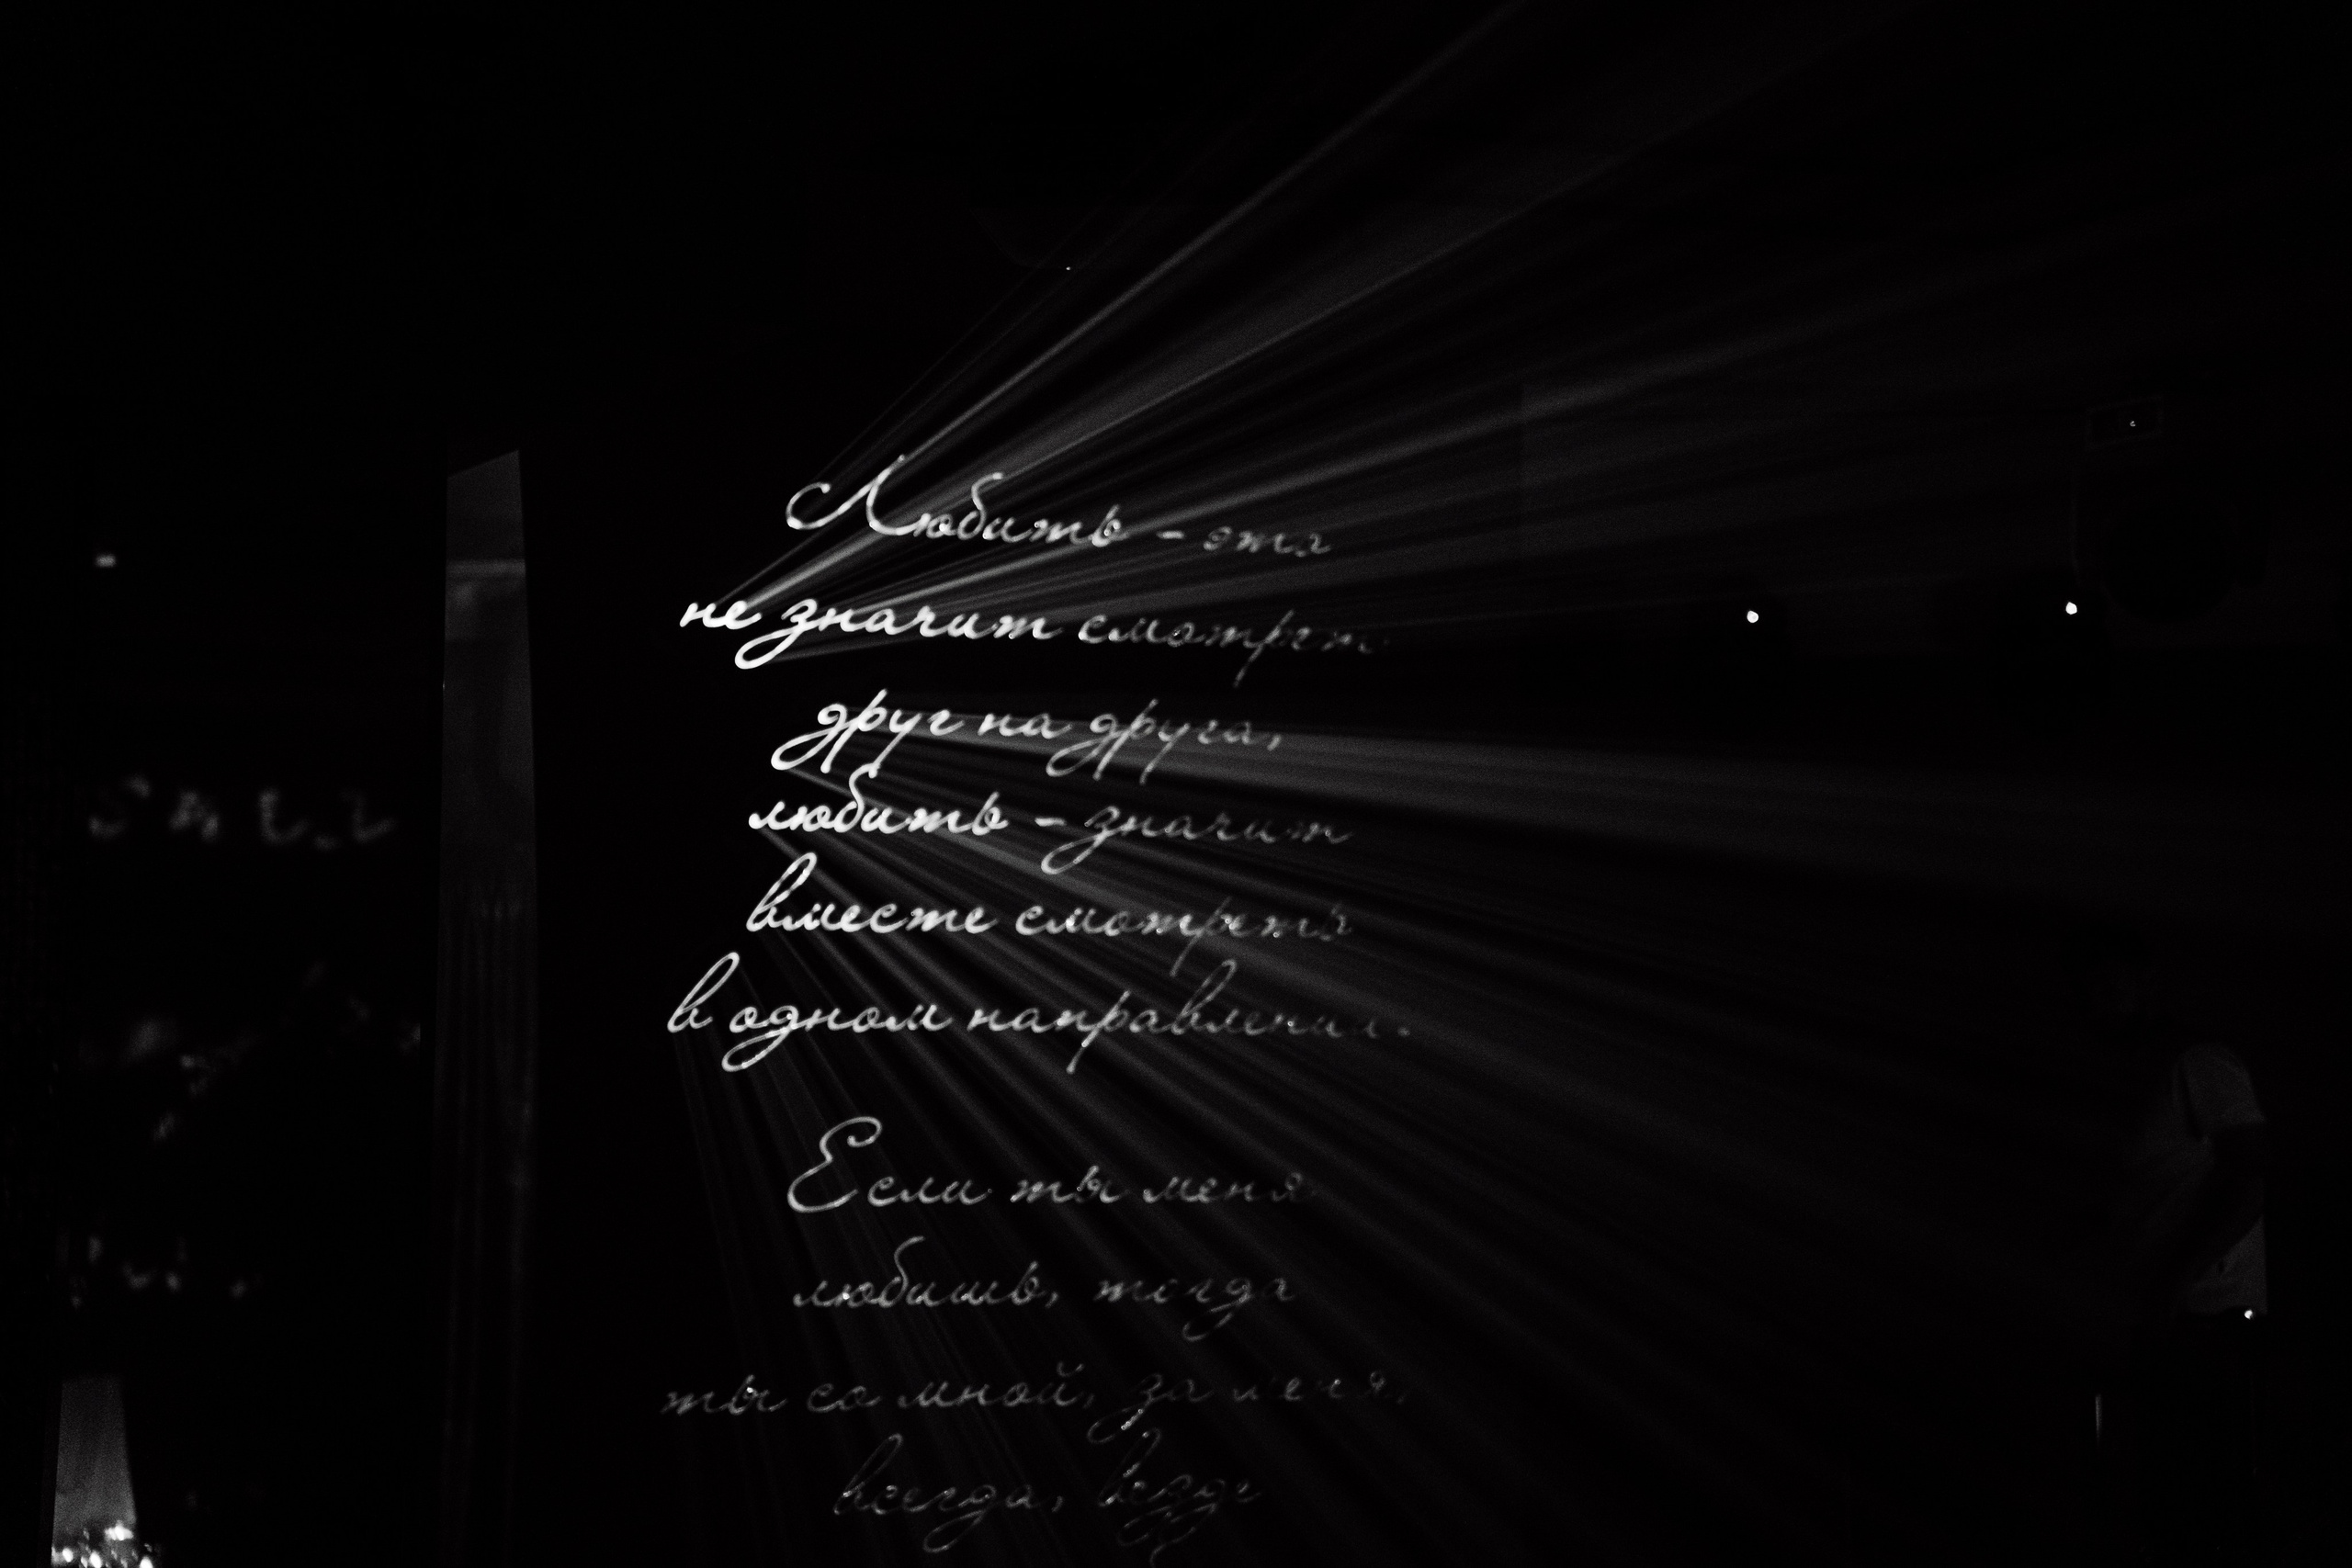 Любить - это
не значит смотреть
друг на друга,
любить - значит
вместе смотреть
в одном направлении.
Если ты меня
любишь, тогда
ты со мной, за меня,
всегда, везде